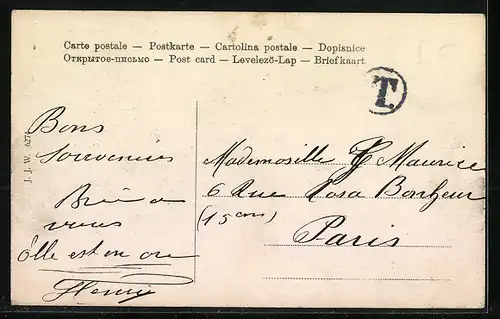 Carte postale — Postkarte — Cartolina postale — Dopisnice
Открытое-письмо — Post card — Levelező-Lap — Briefkaart
T.
J. J. W. 6271
Bons
souvenirs
à
vous
Elle est ou
Henry
Mademoiselle Maurice
6 Rue Rosa Bonheur
(15 em)
Paris